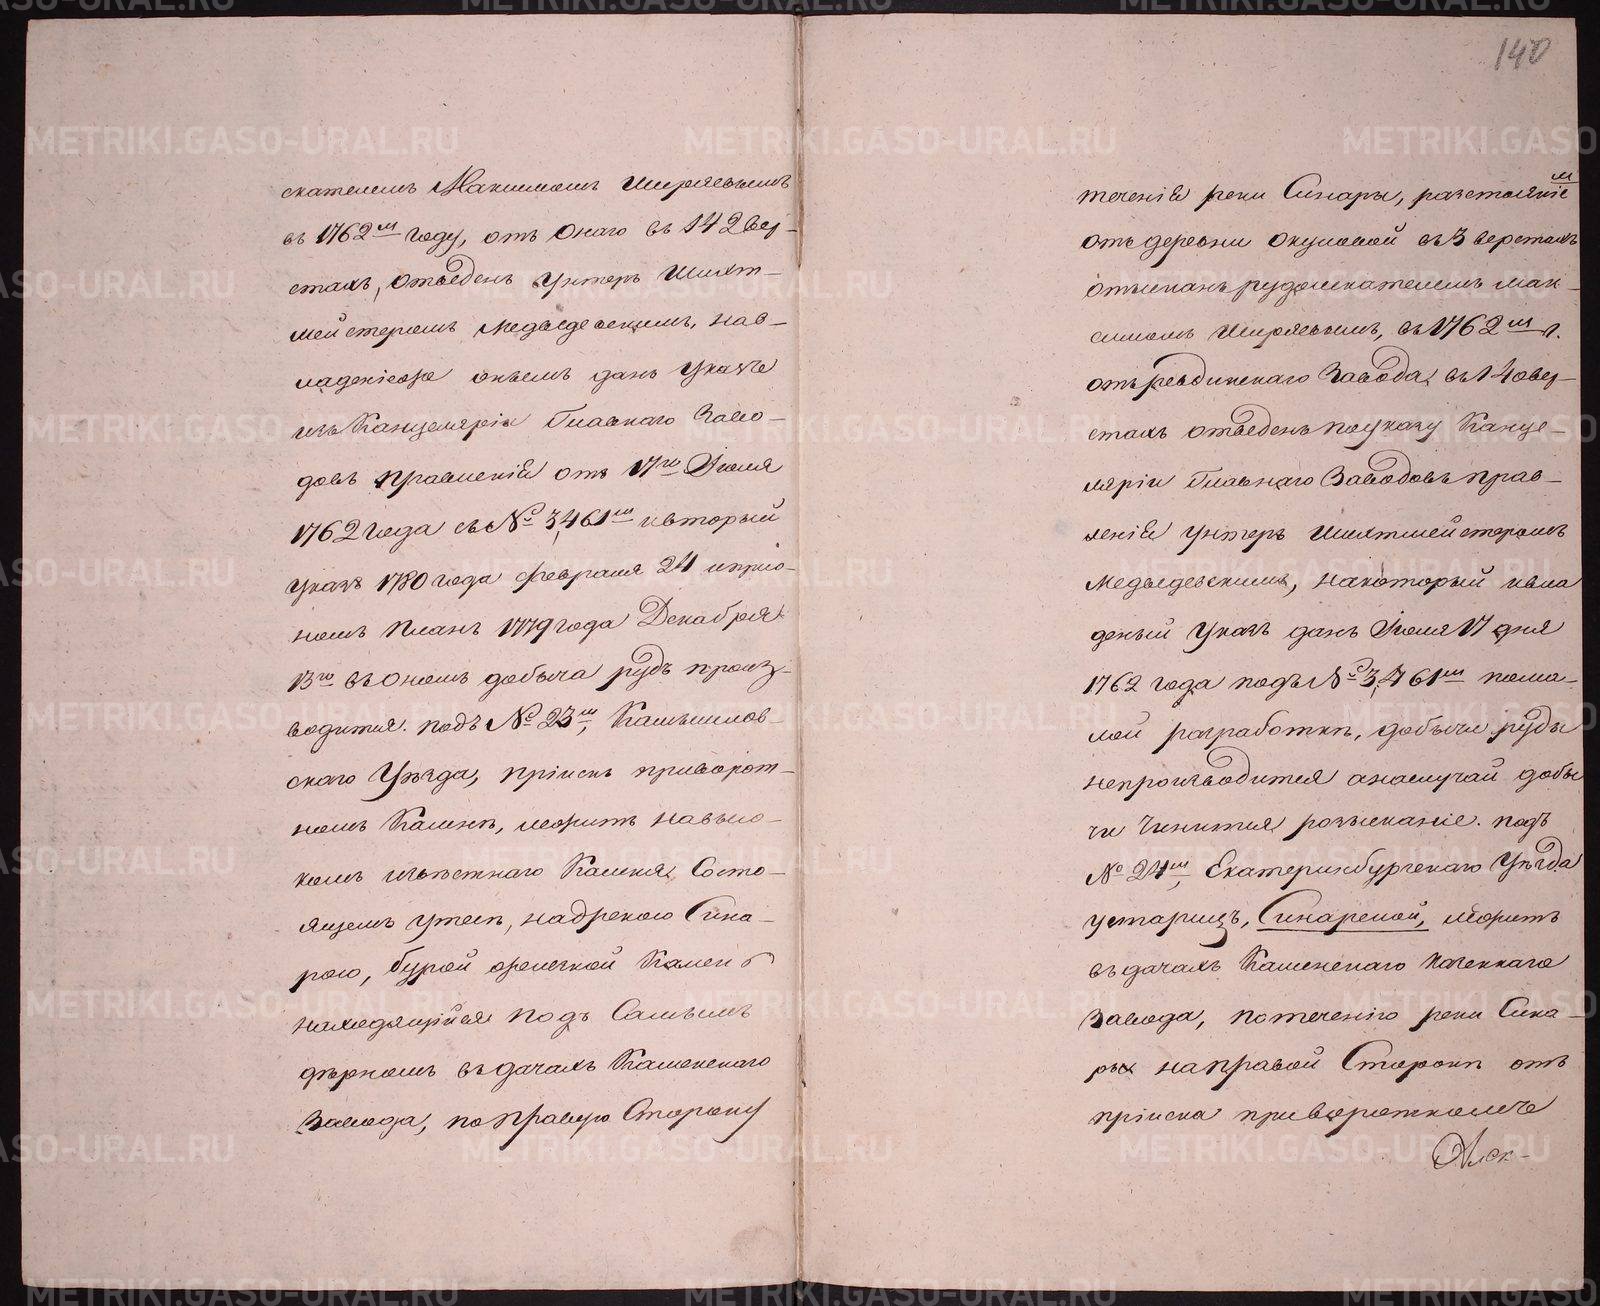 скателемъ Максимомъ Ширяевымъ
въ 1762м году, отъ онаго въ 142 вер-
стахъ, отведенъ Унтеръ Шихт-
мейстеромъ Медведевскимъ, нав-
ладенiе онымъ данъ Указъ
изъ Канцелярiи Главнаго Заво-
довъ правленiя отъ 17го Iюля
1762 года съ № 3,461м ивторый
указъ 1780 года февраля 24 априо-
номъ планъ 1779 года Декабря
13го въ ономъ добыча рудъ произ-
водится. подъ № 23м, Камышлов-
скаго Уѣзда, прiискъ приворот-
номъ Камнѣ, лежитъ навысо-
комъ известнаго Камня Состо-
ящемъ утесѣ, надрекою Сина-
рою, бурой железной Камень
находящiйся подъ Самымъ
дерномъ въ дачахъ Каменскаго
Завода, по правую Сторону
140
теченiя реки Синары, разстоянiе
м
отъ деревни Окуловой въ 3 верстахъ
отысканъ рудоискателемъ Мак-
симомъ Ширяевымъ, въ 1762м г.
отъ ревдинскаго Завода, въ 140 вер-
стахъ отведенъ поуказу Канце-
лярiи Главнаго Заводовъ прав-
ленiя Унтеръ Шихтмейстеромъ
Медведевскимъ, накоторый ивла
деный Указъ данъ Iюля 17 дня
1762 года подъ № 3,461м пома-
лой розработкѣ, добычи руды
непроизводится анаслучай добы
чи Чинится розысканiе. подъ
№ 24м, Екатеринбургскаго Уѣзда
устарицъ, Синарской, лежитъ
въ дачахъ Каменскаго Казеннаго
Завода, потеченiю реки Сина-
ры направой Сторонѣ отъ
прiиска приворотномъ
Алек-